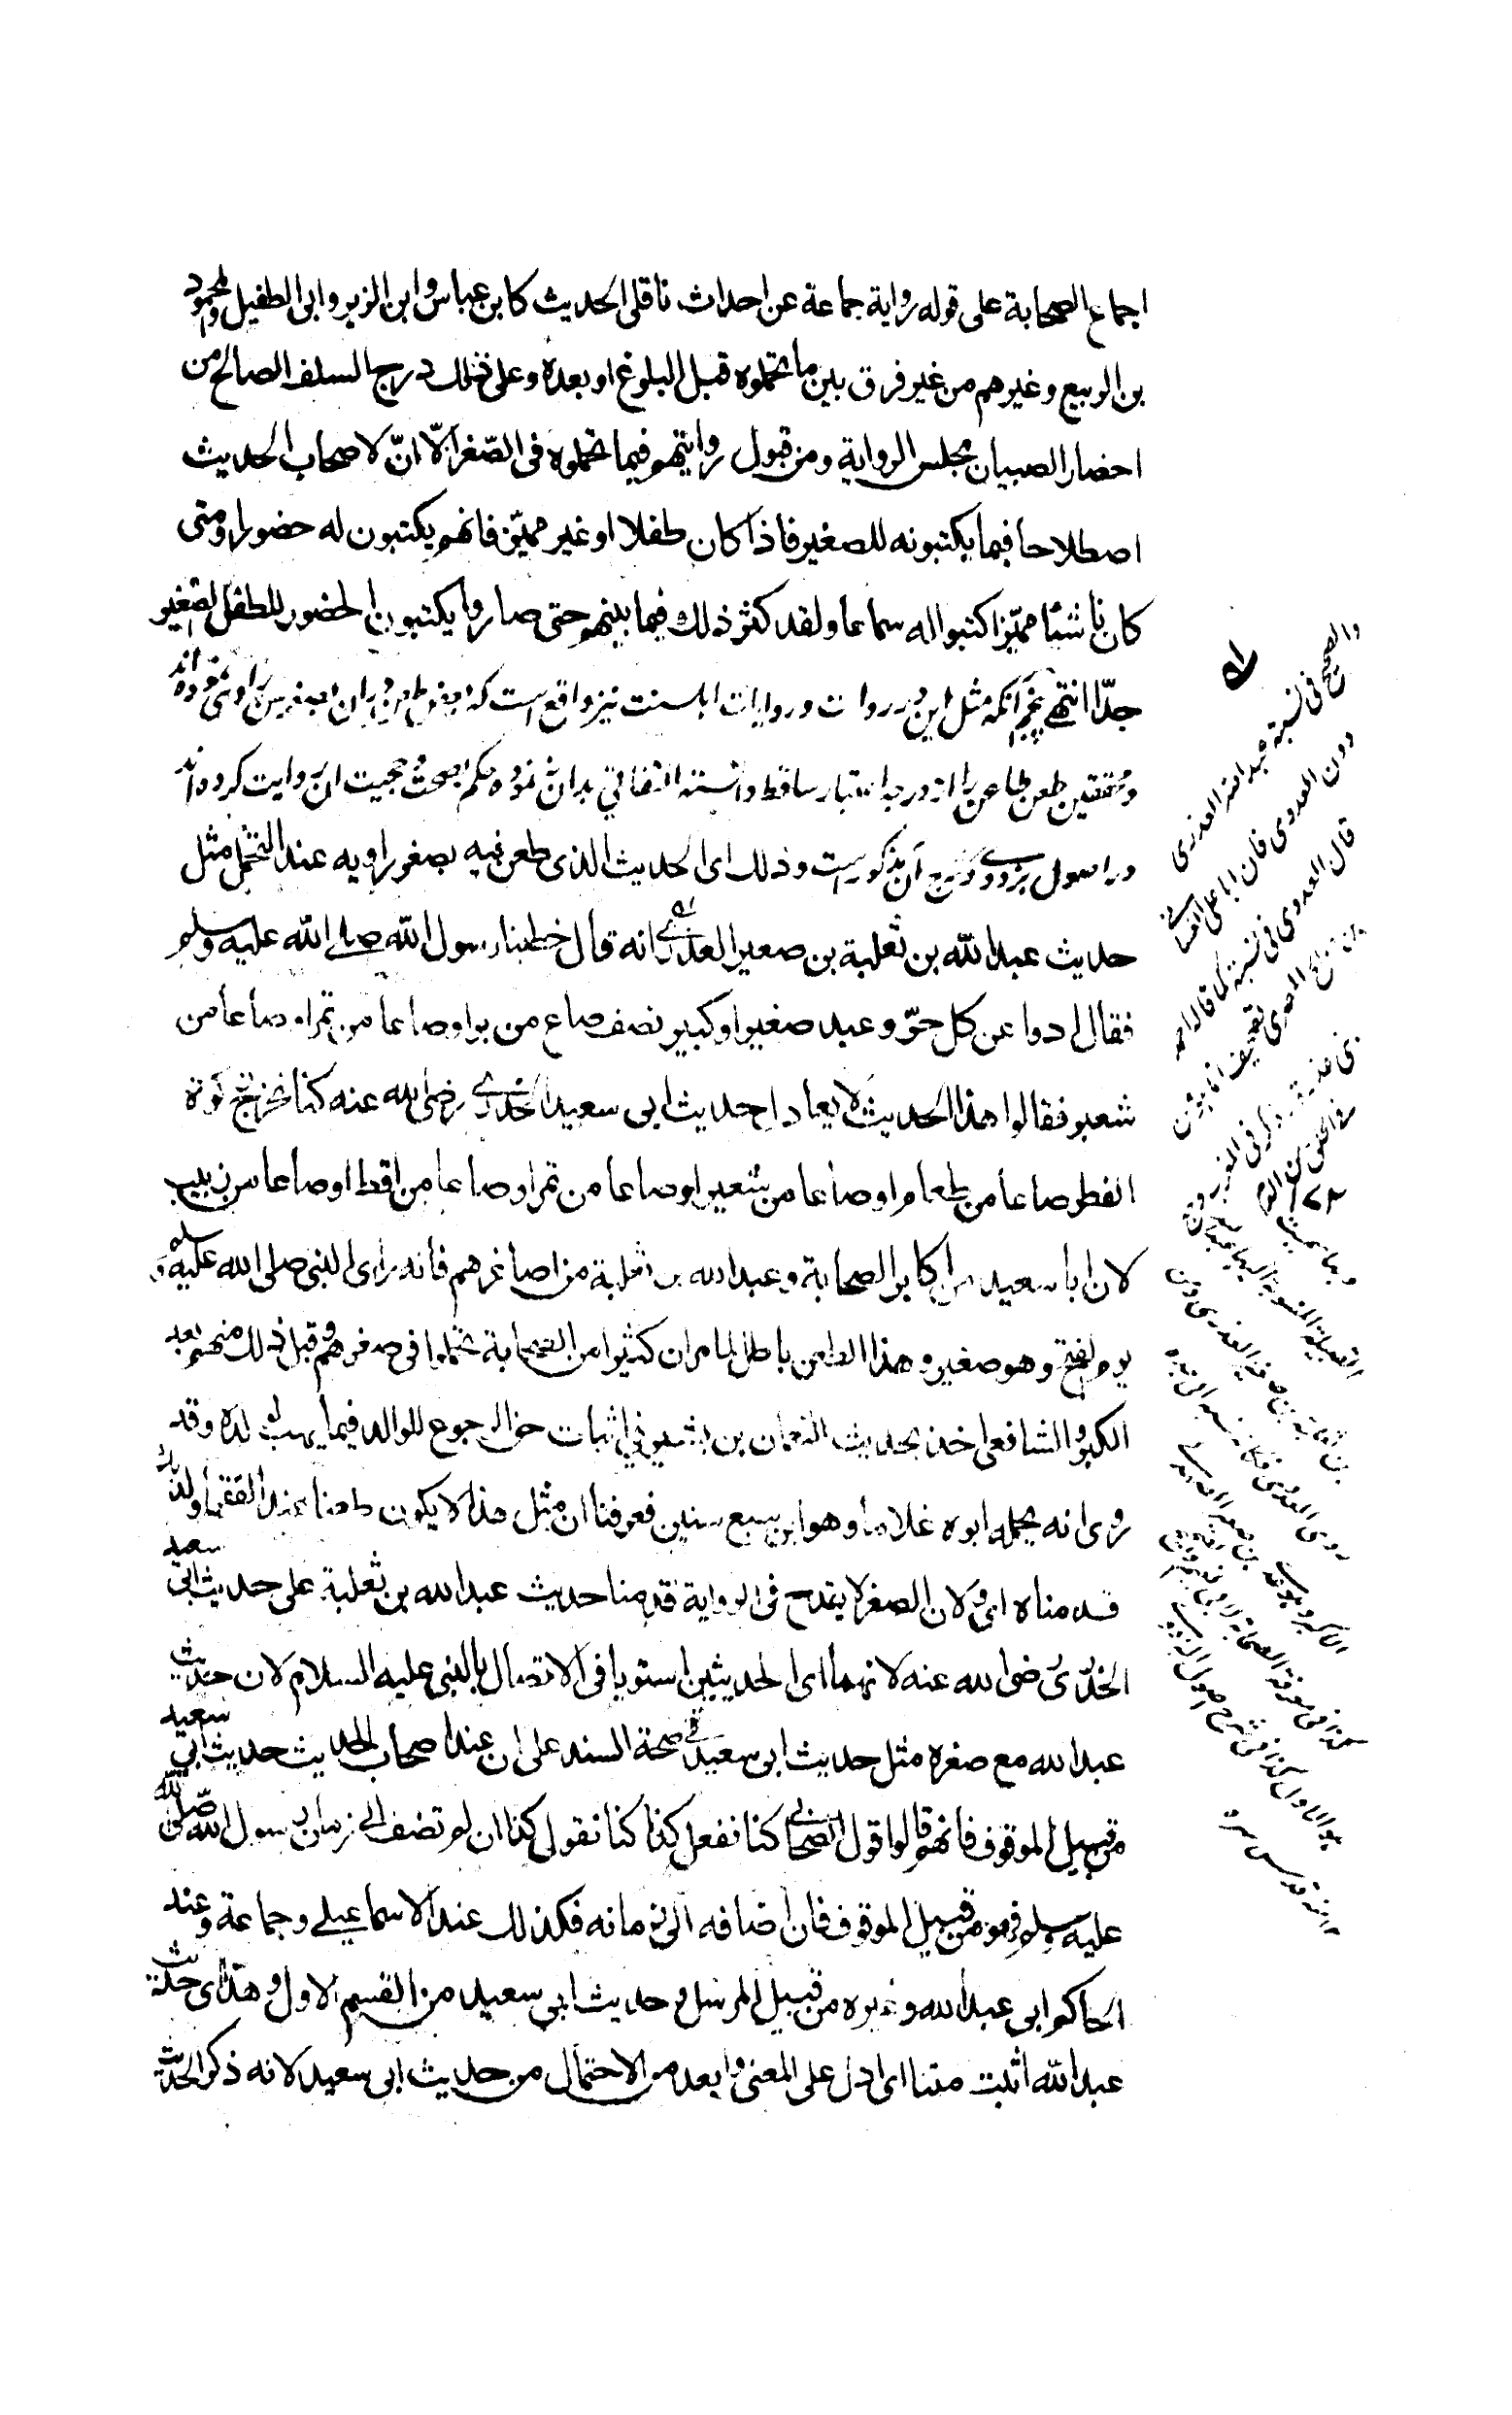 اجماع الصحابة على قوله رواية جماعة عن احداث ناقلى الحديث كابن عباس وابن الزبير وابى الطفيل ومحمود
بن الربيع وغيرهم من غير فرق بين ما تحملوه قبل البلوغ او بعده وعلى ذلك درج السلف الصالح من
احضار الصبيان مجلس الرواية ومن قبول روايتهم فيما تحملوه فى الصّغر الّا انّ لاصحاب الحديث
اصطلاحا فيما يكتبونه للصغير فاذا كان طفلا او غير مميّز فانهم يكتبون له حضورا ومتى
كان ناشئا مميّزا كتبوا له سماعا ولقد كثر ذلك فيما بينهم حتى صاروا يكتبون الحضور للطفل الصغير
جدّا انتهى پنجم آنكه مثل اين در روات وروايات اهلسنت نيز واقع است كه
ومحققين طعن طاعن را از درجه اعتبار ساقط دانسته التفاتي بدان ننموده حكم بصحت وحجيت ان روايت كرده اند
در اصول بزدوى وشرح آن مذكور است وذلك اى الحديث الذى طعن فيه بصغر راويه عند التحمل مثل
حديث عبد الله بن ثعلبة بن صعير العذري انه قال خطبنا رسول الله صلى الله عليه وسلم
فقال ادوا عن كل حرّ وعبد صغير او كبير نصف صاع من بر او صاعا من تمر او صاعا من
شعير فقالوا هذا الحديث لا يعادل حديث ابى سعيد الخدري رضى الله عنه كنا نخرج زكوة
الفطر صاعا من طعام او صاعا من شعير او صاعا من تمر او صاعا من اقط او صاعا من زبيب
لان ابا سعيد من اكابر الصحابة وعبد الله بن ثعلبة من اصاغرهم فانه راى النبى صلى الله عليه وسلم
يوم الفتح وهو صغير وهذا الطعن باطل لما مر ان كثيرا من الصحابة تحملوا فى صغرهم وقبل ذلك منهم بعد
الكبر والشافعى اخذ بحديث النعمان بن بشير في اثبات حق الرجوع للوالد فيما يهب لولده وقد
روى انه نحله ابوه غلاما وهو ابن سبع سنين فعرفنا ان مثل هذا لا يكون طعنا عند الفقهاء ولذلك
قدمناه اى ولان الصغر لا يقدح فى الرواية قدمنا حديث عبد الله بن ثعلبة على حديث ابى سعيد
الخدرى رضى الله عنه لانهما اى الحديثين استويا فى الاتصال بالنبى عليه السلام لان حديث
عبد الله مع صغره مثل حديث ابى سعيد فى صحة السند على ان عند اصحاب الحديث حديث ابى سعيد
من قبيل الموقوف فانهم قالوا قول الصحابي كنا نفعل كذا كنا نقول كذا ان لم تضف الى زمان رسول الله صلى الله
عليه وسلم فهو من قبيل الموقوف فان اضافه الى زمانه فكذلك عند الاسماعيلى وجماعة وعند
الحاكم ابى عبد الله وغيره من قبيل المرسل وحديث ابى سعيد من القسم الاول وهذا اى حديث
عبد الله اثبت متنا اى ادل على المعنى وابعد من الاحتمال من حديث ابى سعيد لانه ذكر الحديث
والصحيح فى نسبة عبد الله العذرى
دون العدوى فان ابا على الغسانى
قال العدوى فى نسبة كما قاله احمد
بن صالح المصرى تصحيف انما هو من
بنى عذرة